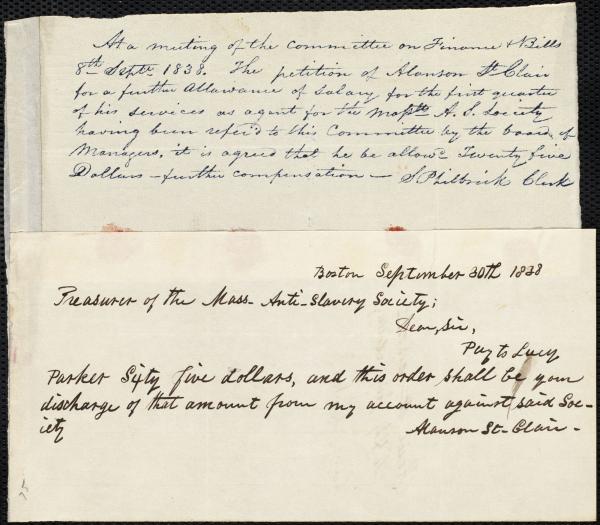 At a meeting of the Committee on Finance & Bills
8th Septr 1838. The petition of Alanson St Clair
for a further Allowance of Salary for the first quarter
of his services as agent for the Massts A. S. Society
having been refer'd to this Committee by the board of
Managers, it is agreed that he be allowd Twenty five
Dollars - further compensation - S Philbrick Clerk
Boston September 30th 1838
Treasurer of the Mass- Anti-Slavery Society;
Dear, Sir,
Pay to Lucy
Parker Sixty five dollars, and this order shall be your
discharge of that amount from my account against said Soc-
iety
Alanson St- Clair-